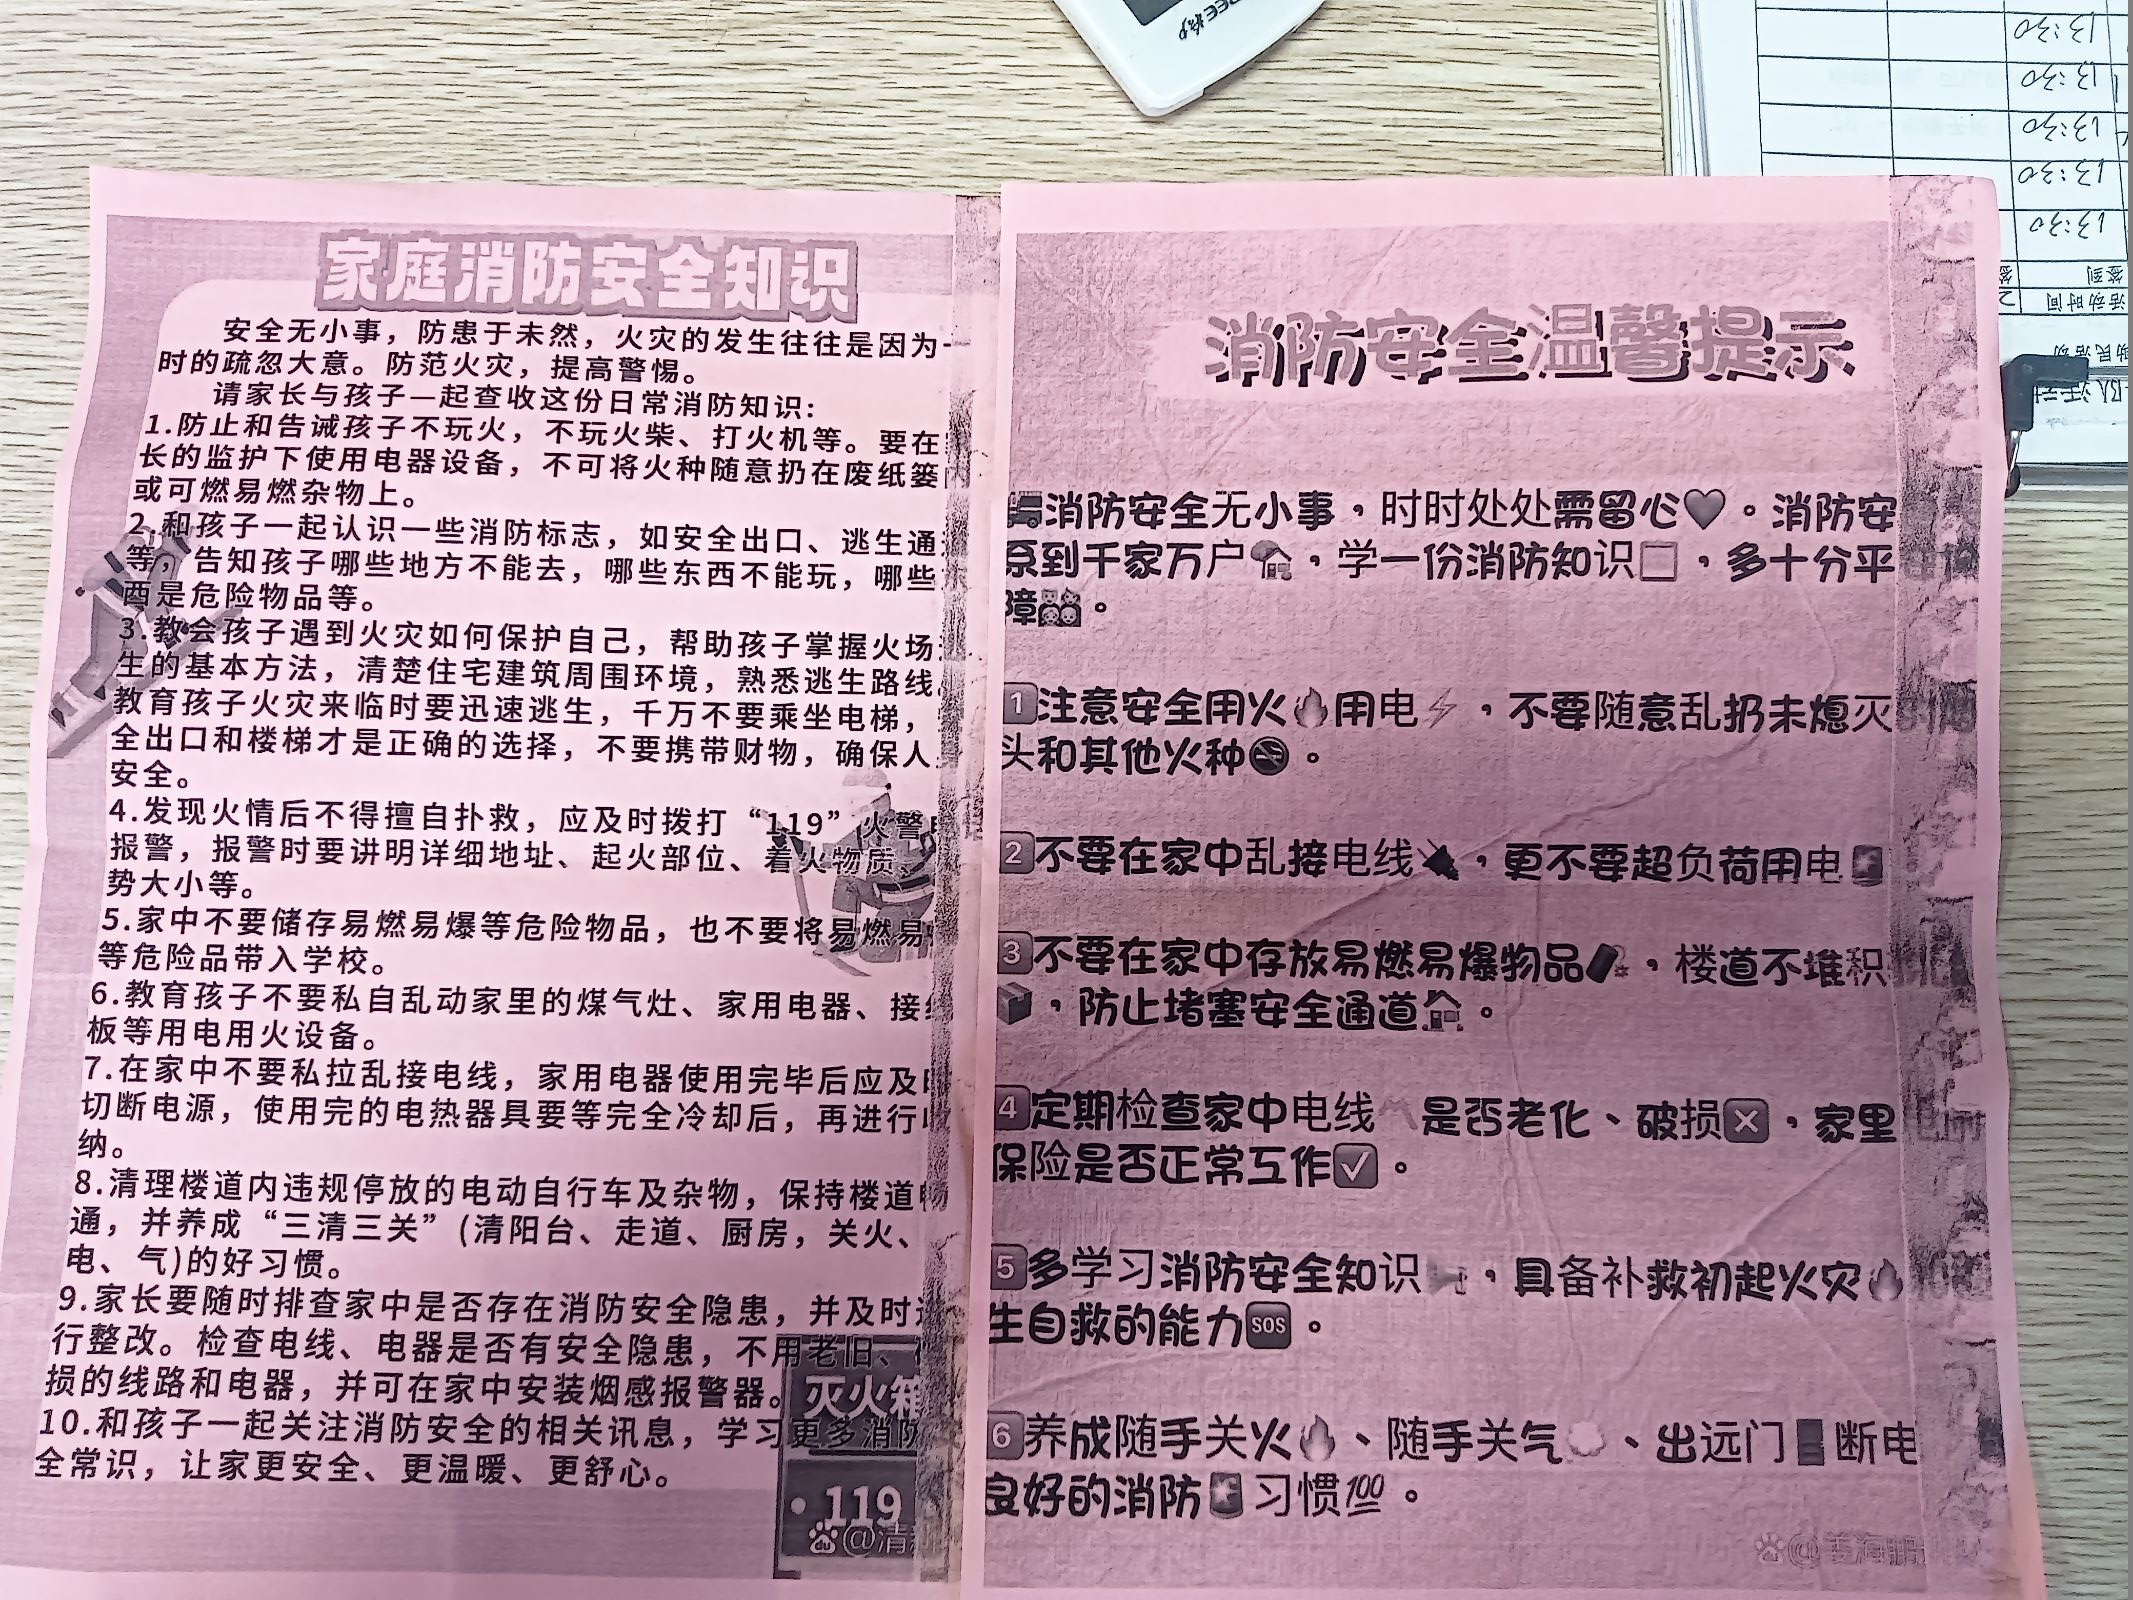 家庭消防安全知识
安全无小事，防患于未然，火灾的发生往往是因为一
时的疏忽大意。防范火灾，提高警惕。
请家长与孩子一起查收这份日常消防知识：
1.防止和告诫孩子不玩火，不玩火柴、打火机等。要在
长的监护下使用电器设备，不可将火种随意扔在废纸篓
或可燃易燃杂物上。
2.和孩子一起认识一些消防标志，如安全出口、逃生通
等，告知孩子哪些地方不能去，哪些东西不能玩，哪些
西是危险物品等。
3.教会孩子遇到火灾如何保护自己，帮助孩子掌握火场
生的基本方法，清楚住宅建筑周围环境，熟悉逃生路线
教育孩子火灾来临时要迅速逃生，千万不要乘坐电梯，
全出口和楼梯才是正确的选择，不要携带财物，确保人
安全。
4.发现火情后不得擅自扑救，应及时拨打“119”火警
报警，报警时要讲明详细地址、起火部位、着火物质、
势大小等。
5.家中不要储存易燃易爆等危险物品，也不要将易燃易
等危险品带入学校。
6.教育孩子不要私自乱动家里的煤气灶、家用电器、接
板等用电用火设备。
7.在家中不要私拉乱接电线，家用电器使用完毕后应及
切断电源，使用完的电热器具要等完全冷却后，再进行
纳。
8.清理楼道内违规停放的电动自行车及杂物，保持楼道
通，并养成“三清三关”(清阳台、走道、厨房，关火、
电、气)的好习惯。
9.家长要随时排查家中是否存在消防安全隐患，并及时
行整改。检查电线、电器是否有安全隐患，不用老旧、
损的线路和电器，并可在家中安装烟感报警器。
10.和孩子一起关注消防安全的相关讯息，学习更多消防
全常识，让家更安全、更温暖、更舒心。
灭火箱
119
@清
消防安全温馨提示
消防安全无小事，时时处处需留心🖤。消防安
系到千家万户🏠，学一份消防知识，多十分平
障。
1注意安全用火🔥用电⚡，不要随意乱扔未熄灭
头和其他火种🚭。
2不要在家中乱接电线🔌，更不要超负荷用电
3不要在家中存放易燃易爆物品🧨，楼道不堆积
📦，防止堵塞安全通道🏠。
4定期检查家中电线是否老化、破损❎，家里
保险是否正常工作✅。
5多学习消防安全知识，具备补救初起火灾🔥
生自救的能力🆘。
6养成随手关火🔥、随手关气、出远门断电
良好的消防习惯💯。
13:30
13:30
13:30
13:30
13:30
签到
活动时间